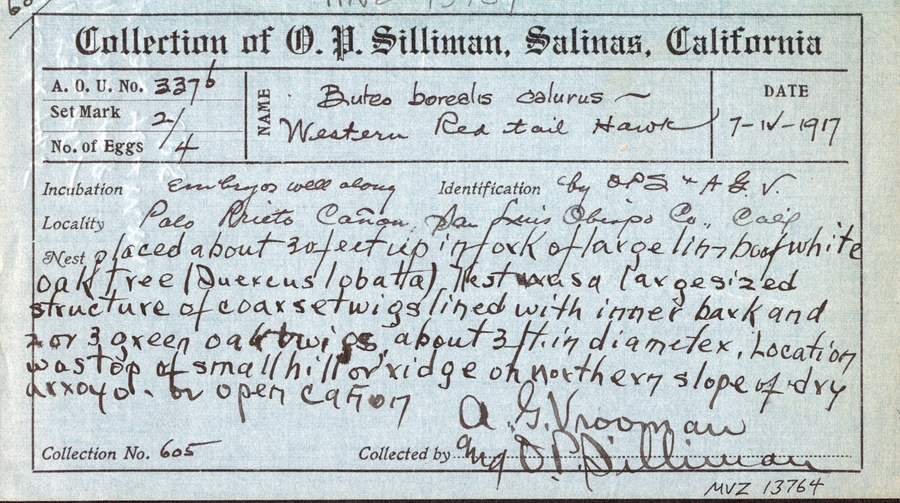 Collection of O. P. Silliman, Salinas, California
A. O. U. No. 337b
Set Mark 2/4
No. of Eggs
NAME
Buteo borealis calurus ~
Western Red tail Hawk
DATE
7-IV-1917
Incubation Embryos well along Identification by OPS & A G. V.
Locality Palo Prieto Cañon, San Luis Obispo Co., Calif
Nest placed about 30 feet up in fork of large limb of white
oak tree (Quercus lobatta). Nest was a large sized
structure of coarse twigs lined with inner bark and
2 or 3 green oak twigs, about 3 ft. in diameter. Location
was top of small hill or ridge on northern slope of dry
arroyo. or open cañon
A. G. Vrooman
Collection No. 605 Collected by and O. P. Silliman
MVZ 13764